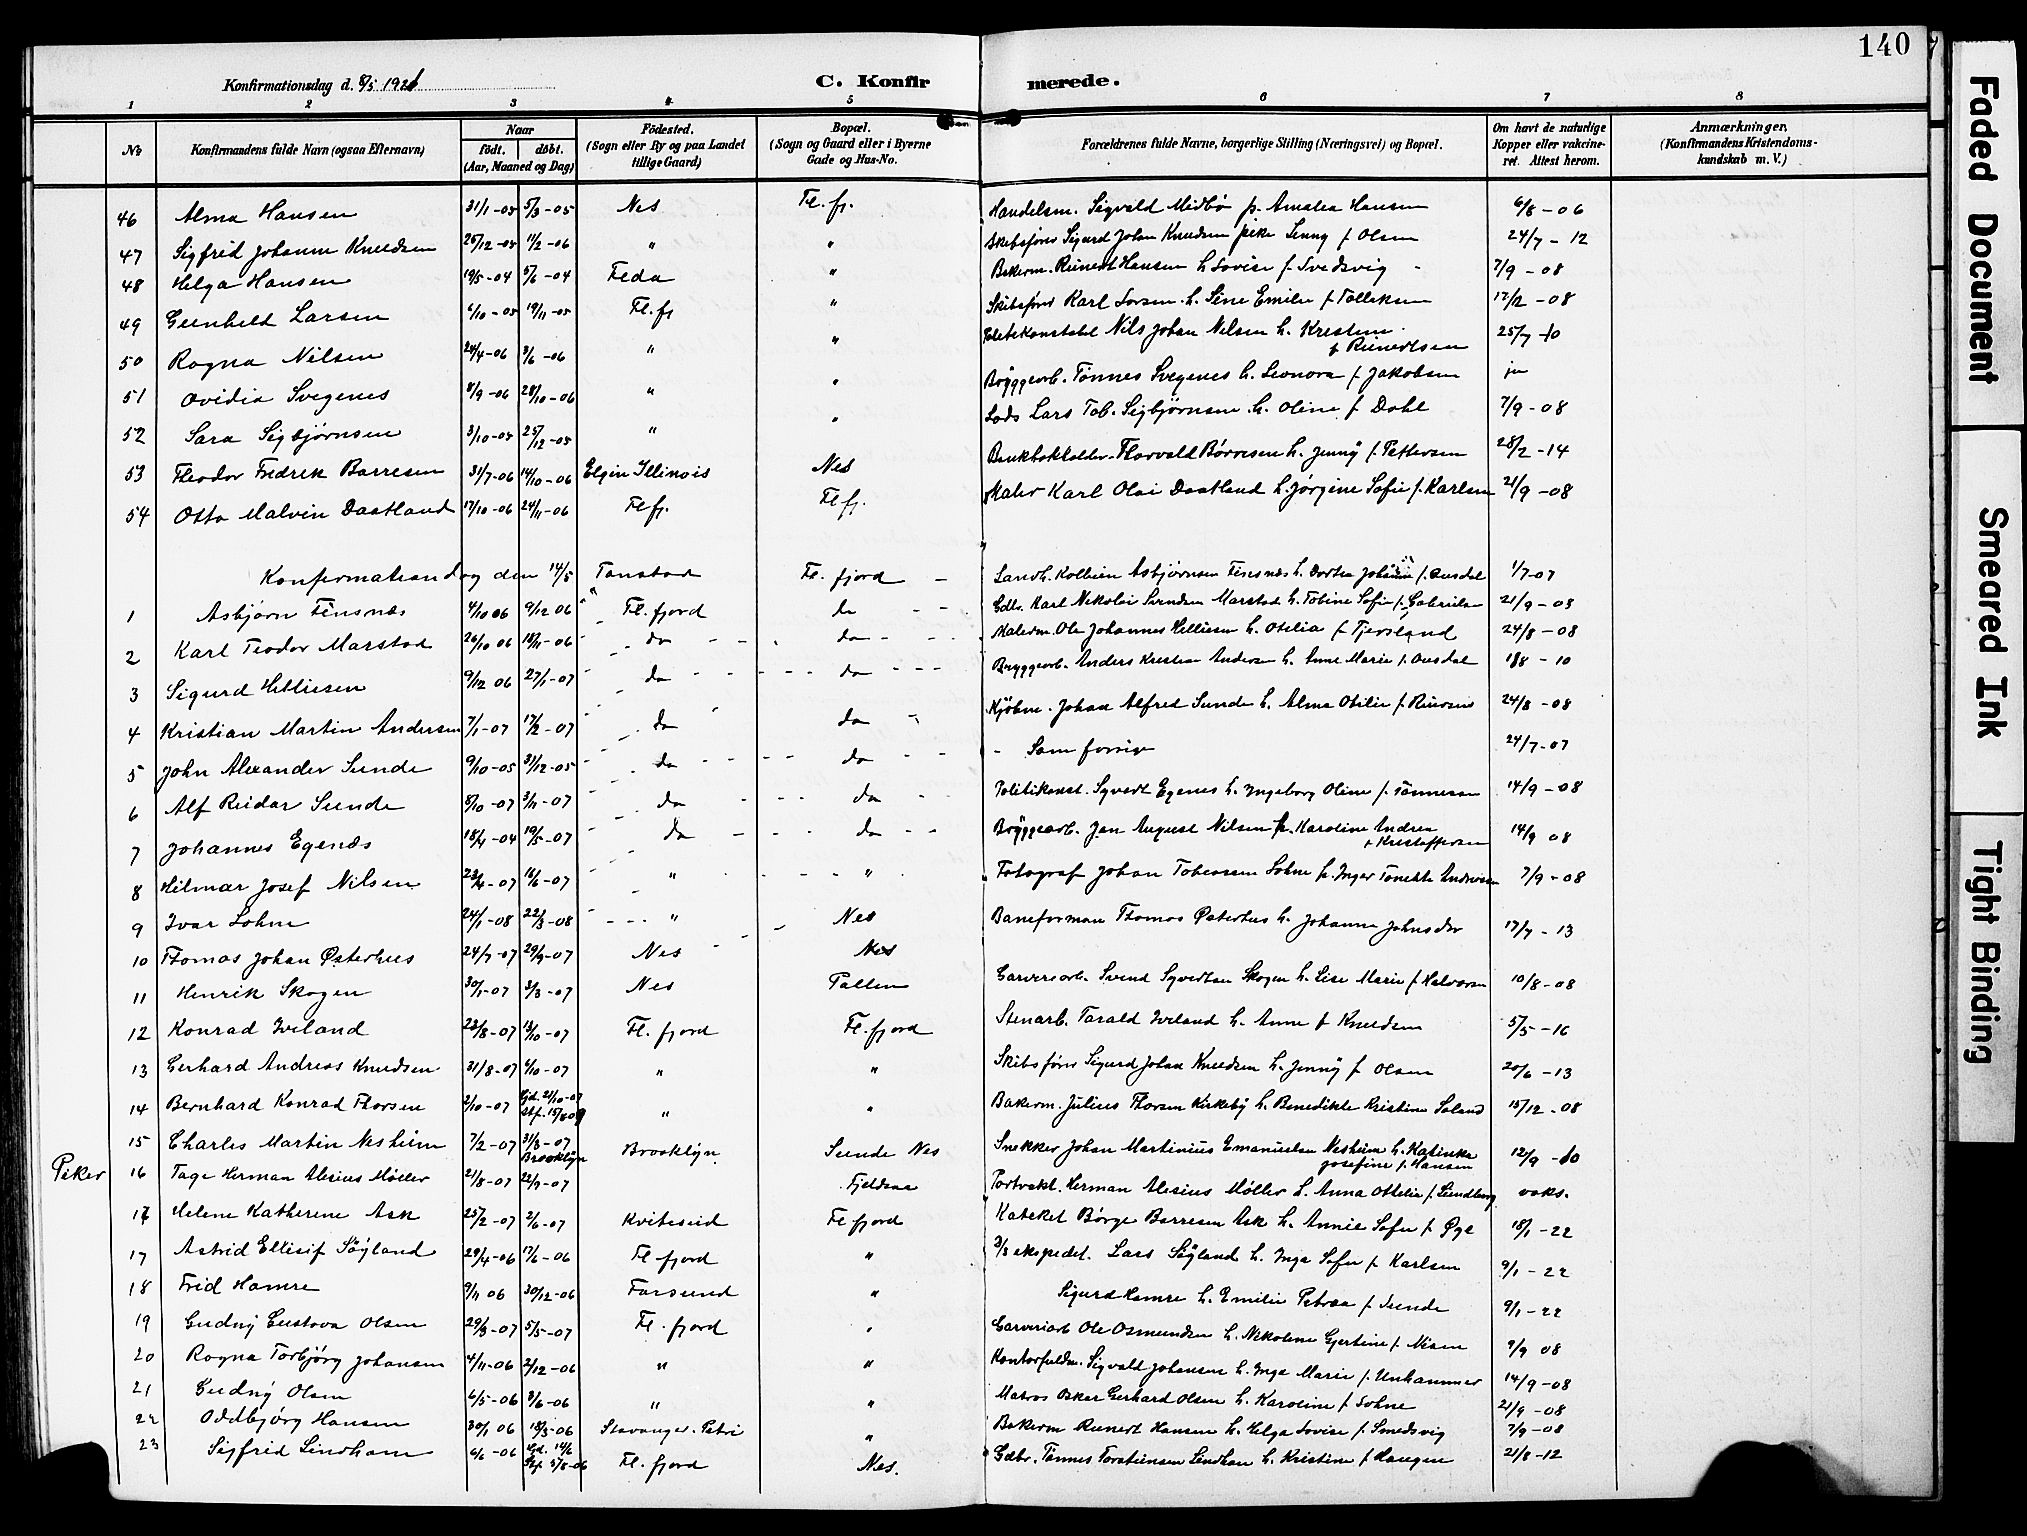 140
Konfirmationsdag d. 8/5 1921 C. Konfirmerede.
1 2 3 4 5 6 7 8
No Konfirmandens fulde Navn (ogsaa Efternavn) Naar født. døbt. (Aar, Maaned og Dag) Födested. (Sogn eller By og paa Landet tillige Gaard) Bopæl. (Sogn og Gaard eller i Byerne Gade og Hus-No. Forældrenes fulde Navne, borgerlige Stilling (Næringsvei) og Bopæl. Om havt de naturlige Kopper eller vakcineret. Attest herom. Anmærkninger. (Konfirmandens Kristendomskundskab m. V.)
46 Alma Hansen 31/1-05 5/3-05 Nes Fl. fj. Handelsm. Sigvald Midbø p. Amalia Hansen 6/8-06
47 Sigfrid Johanne Knudsen 25/12-05 11/2-06 " " Skibsfører Sigurd Johan Knudsen pike Jenny f Olsen 24/7-12
48 Helga Hansen 19/5-04 5/6-04 Feda " Bakerm. Reinert Hansen h. Lovise f. Svedsvig 7/9-08
49 Gunhild Larsen 6/10-05 19/11-05 Fl. fj " Skibsfører Karl Larsen h. Sine Emilie f Tolleksen 12/2-08
50 Ragna Nilsen 24/4-06 3/6-06 " " Politikonstabel Nils Johan Nilsen h. Kristine f Reinertsen 25/7-10
51 Ovidia Svegenes 8/9-06 28/10-06 " " Bryggearb. Tønnes Svegenes h. Leonora f Jakobsen ja
52 Sara Sigbjørnsen 3/10-05 25/12-05 " " Lods Lars Tob. Sigbjørnsen h. Oline f Dahl 7/9-08
53 Theodor Fredrik Børresen 31/7-06 14/10-06 Elgin Illinois Nes Bankbokholder Thorvald Børresen h. Jenny f. Pettersen 28/2-14
54 Otto Malvin Daatland 17/10-06 24/11-06 Fl fj. Fl fj. Maler Karl Olai Daatland h. Jørgine Sofie f. Karlsen 21/9-08
Konfirmationsdag den 14/5
1 Asbjørn Finsnes 4/10 06 9/12 06 Tonstad Fl. fjord Landh. Kolbein Asbjørnsen Finsnes h. Dortea Johanne f. Ousdal 1/7-07
2 Karl Teodor Marstad 26/10 06 18/11-06 Fl. fjord do Gdbr. Karl Nikolai Svendsen Marstad h. Tobine Sofie f. Gabrielsen 21/9-03
3 Sigurd Helliesen 9/12 06 27/1-07 do do Malerm. Ole Johannes Helliesen h. Otelia f Tjersland 24/8-08
4 Kristian Martin Andersen 7/1-07 17/2-07 do do Bryggearb. Anders Kristian Andersen h. Anne Marie f. Ousdal 18-10
5 John Alexander Sunde 9/10-05 31/12-05 do do Kjøbm. Johan Alfred Sunde h. Alma Otilie f. 24/8-08
6 Alf Reidar Sunde 8/10-07 3/11-07 do do Som forrige 24/7-07
7 Johannes Egenæs 18/4-04 19/5-07 do do Politikonst. Syvert Egenes h. Ingeborg Oline f. Tønnesen 14/9-08
8 Hilmar Josef Nilsen 23/4-07 16/6-07 " " Bryggearb. Jan August Nilsen h. Karoline Andrea f Kristoffersen 14/9 08
9 Ivar Lohne 24/1-08 22/3-08 " Nes Fotograf Johan Tobiassen Lohne h. Inger Tonette Andersen 7/9-08
10 Thomas Johan Østerhus 24/7-07 29/9-07 Nes Nes Baneformann Thomas Østerhus h. Johanne Johnsdtr 17/7-13
11 Henrik Skogen 30/1-07 3/3-07 Nes Pallen Garveriarb. Svend Syvertsen Skogen h. Lise Marie f Halvorsen 10/8-08
12 Konrad Iveland 22/8-07 13/10-07 Fl. fjord Fl. fjord Stenarb. Tarald Iveland h. Anne f Knudsen 5/5-16
13 Gerhard Andreas Knudsen 31/8-07 6/10-07 " " Skibsfører Sigurd Johan Knudsen h. Jenny f Olsen 20/6-13
14 Bernhard Konrad Thorsen 2/10-07 Gd. 21/10-07 Stf. 15/8-09 " " Bakerm. Julius Thorsen Kirkeby h. Benedikte Kristine Soland 15/12-08
15 Charles Martin Nesheim 7/2-07 31/3-07 Brooklyn Brooklyn Sunde Nes Snekker Johan Martinius Emanuelsen Nesheim h. Katinka Josefine f. Hansen 12/9-10
16 Tage Herman Alesius Møller 21/8-07 22/9-07 Fjeldsaa Portvakt. Herman Alesius Møller h. Anna Ottelie f. Lundberg vaks.
Piker
17 Helene Katherene Ask 25/2-07 2/6-07 Kviteseid Fl fjord Kateket Børge Børresen Ask h. Annie Sofie f. Øye 18/1-22
17 Astrid Ellisif Søyland 29/4-06 17/6-06 Fl. fjord " D/S ekspedit. Lars Søyland h. Inga Sofie f. Karlsen 9/1-22
18 Frid Hamre 9/11 06 30/12-06 Farsund " Sigurd Hamre h. Emilie Petrea f Sunde 9/1-22
19 Gudny Gustava Olsen 29/3-07 5/5-07 Fl. fjord " Garveriarb Ole Osmundsen h. Nikoline Gjertine f. Nisen 9/9 08
20 Ragna Torbjørg Johansen 4/11-06 2/12-06 " " Kontorfuldm. Sigvald Johansen h. Inga Marie f. Unhammer 14/9-08
21 Gudny Olsen 6/5-06 3/6-06 " " Matros Oskar Gerhard Olsen h. Karoline f Lohne 21/9-08
22 Oddbjørg Hansen 30/1 06 18/3-06 Stavanger. Petri " Bakerm Reinert Hansen h. Helga Lovise f. Smedsvig 7/9-08
23 Sigfrid Lindham 6/6-06 Gd. 14/6 Stf. 5/8-06 Fl. fjord Nes. Gdbr. Tønnes Torsteinsen Lindham h. Kristine f Haugen 21/8-12
Faded Document
Smeared Ink
Tight Binding